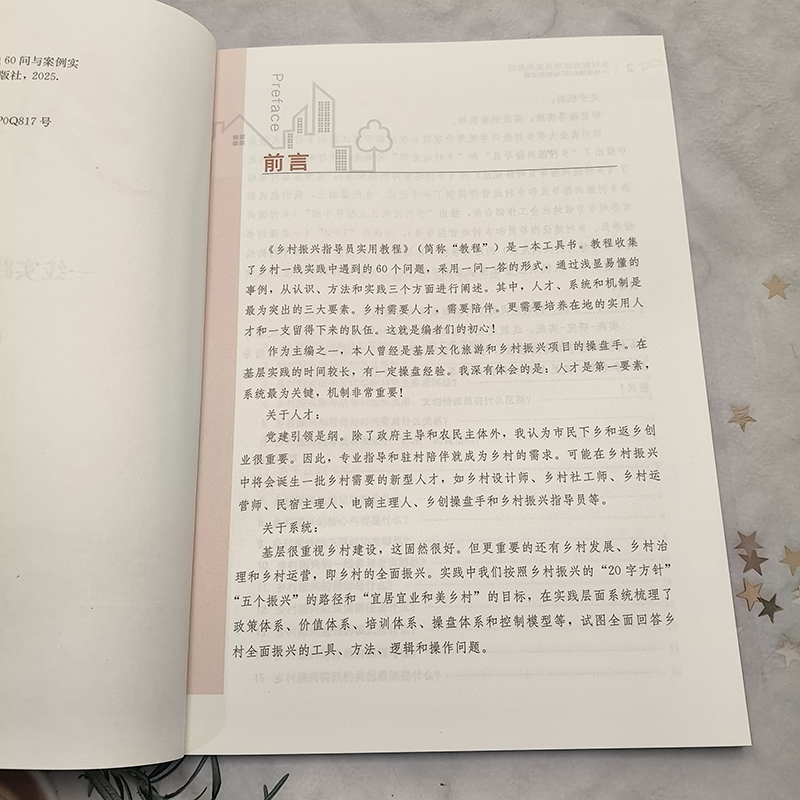 60问与案例实
版社，2025.
P0Q817号
Preface
前言
《乡村振兴指导员实用教程》（简称“教程”）是一本工具书。教程收集
了乡村一线实践中遇到的60个问题，采用一问一答的形式，通过浅显易懂的
事例，从认识、方法和实践三个方面进行阐述。其中，人才、系统和机制是
最为突出的三大要素。乡村需要人才，需要陪伴。更需要培养在地的实用人
才和一支留得下来的队伍。这就是编者们的初心！
作为主编之一，本人曾经是基层文化旅游和乡村振兴项目的操盘手。在
基层实践的时间较长，有一定操盘经验。我深有体会的是：人才是第一要素，
系统最为关键，机制非常重要！
关于人才：
党建引领是纲。除了政府主导和农民主体外，我认为市民下乡和返乡创
业很重要。因此，专业指导和驻村陪伴就成为乡村的需求。可能在乡村振兴
中将会诞生一批乡村需要的新型人才，如乡村设计师、乡村社工师、乡村运
营师、民宿主理人、电商主理人、乡创操盘手和乡村振兴指导员等。
关于系统：
基层很重视乡村建设，这固然很好。但更重要的还有乡村发展、乡村治
理和乡村运营，即乡村的全面振兴。实践中我们按照乡村振兴的“20字方针”
“五个振兴”的路径和“宜居宜业和美乡村”的目标，在实践层面系统梳理了
政策体系、价值体系、培训体系、操盘体系和控制模型等，试图全面回答乡
村全面振兴的工具、方法、逻辑和操作问题。